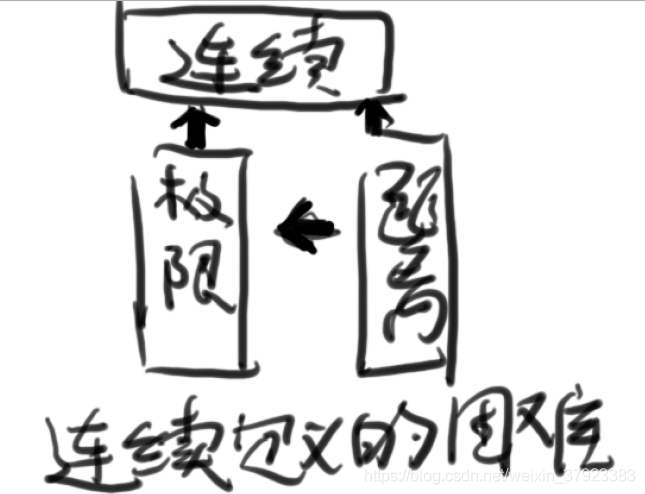 连续
极限
距离
连续定义的困难
https://blog.csdn.net/weixin_37923383